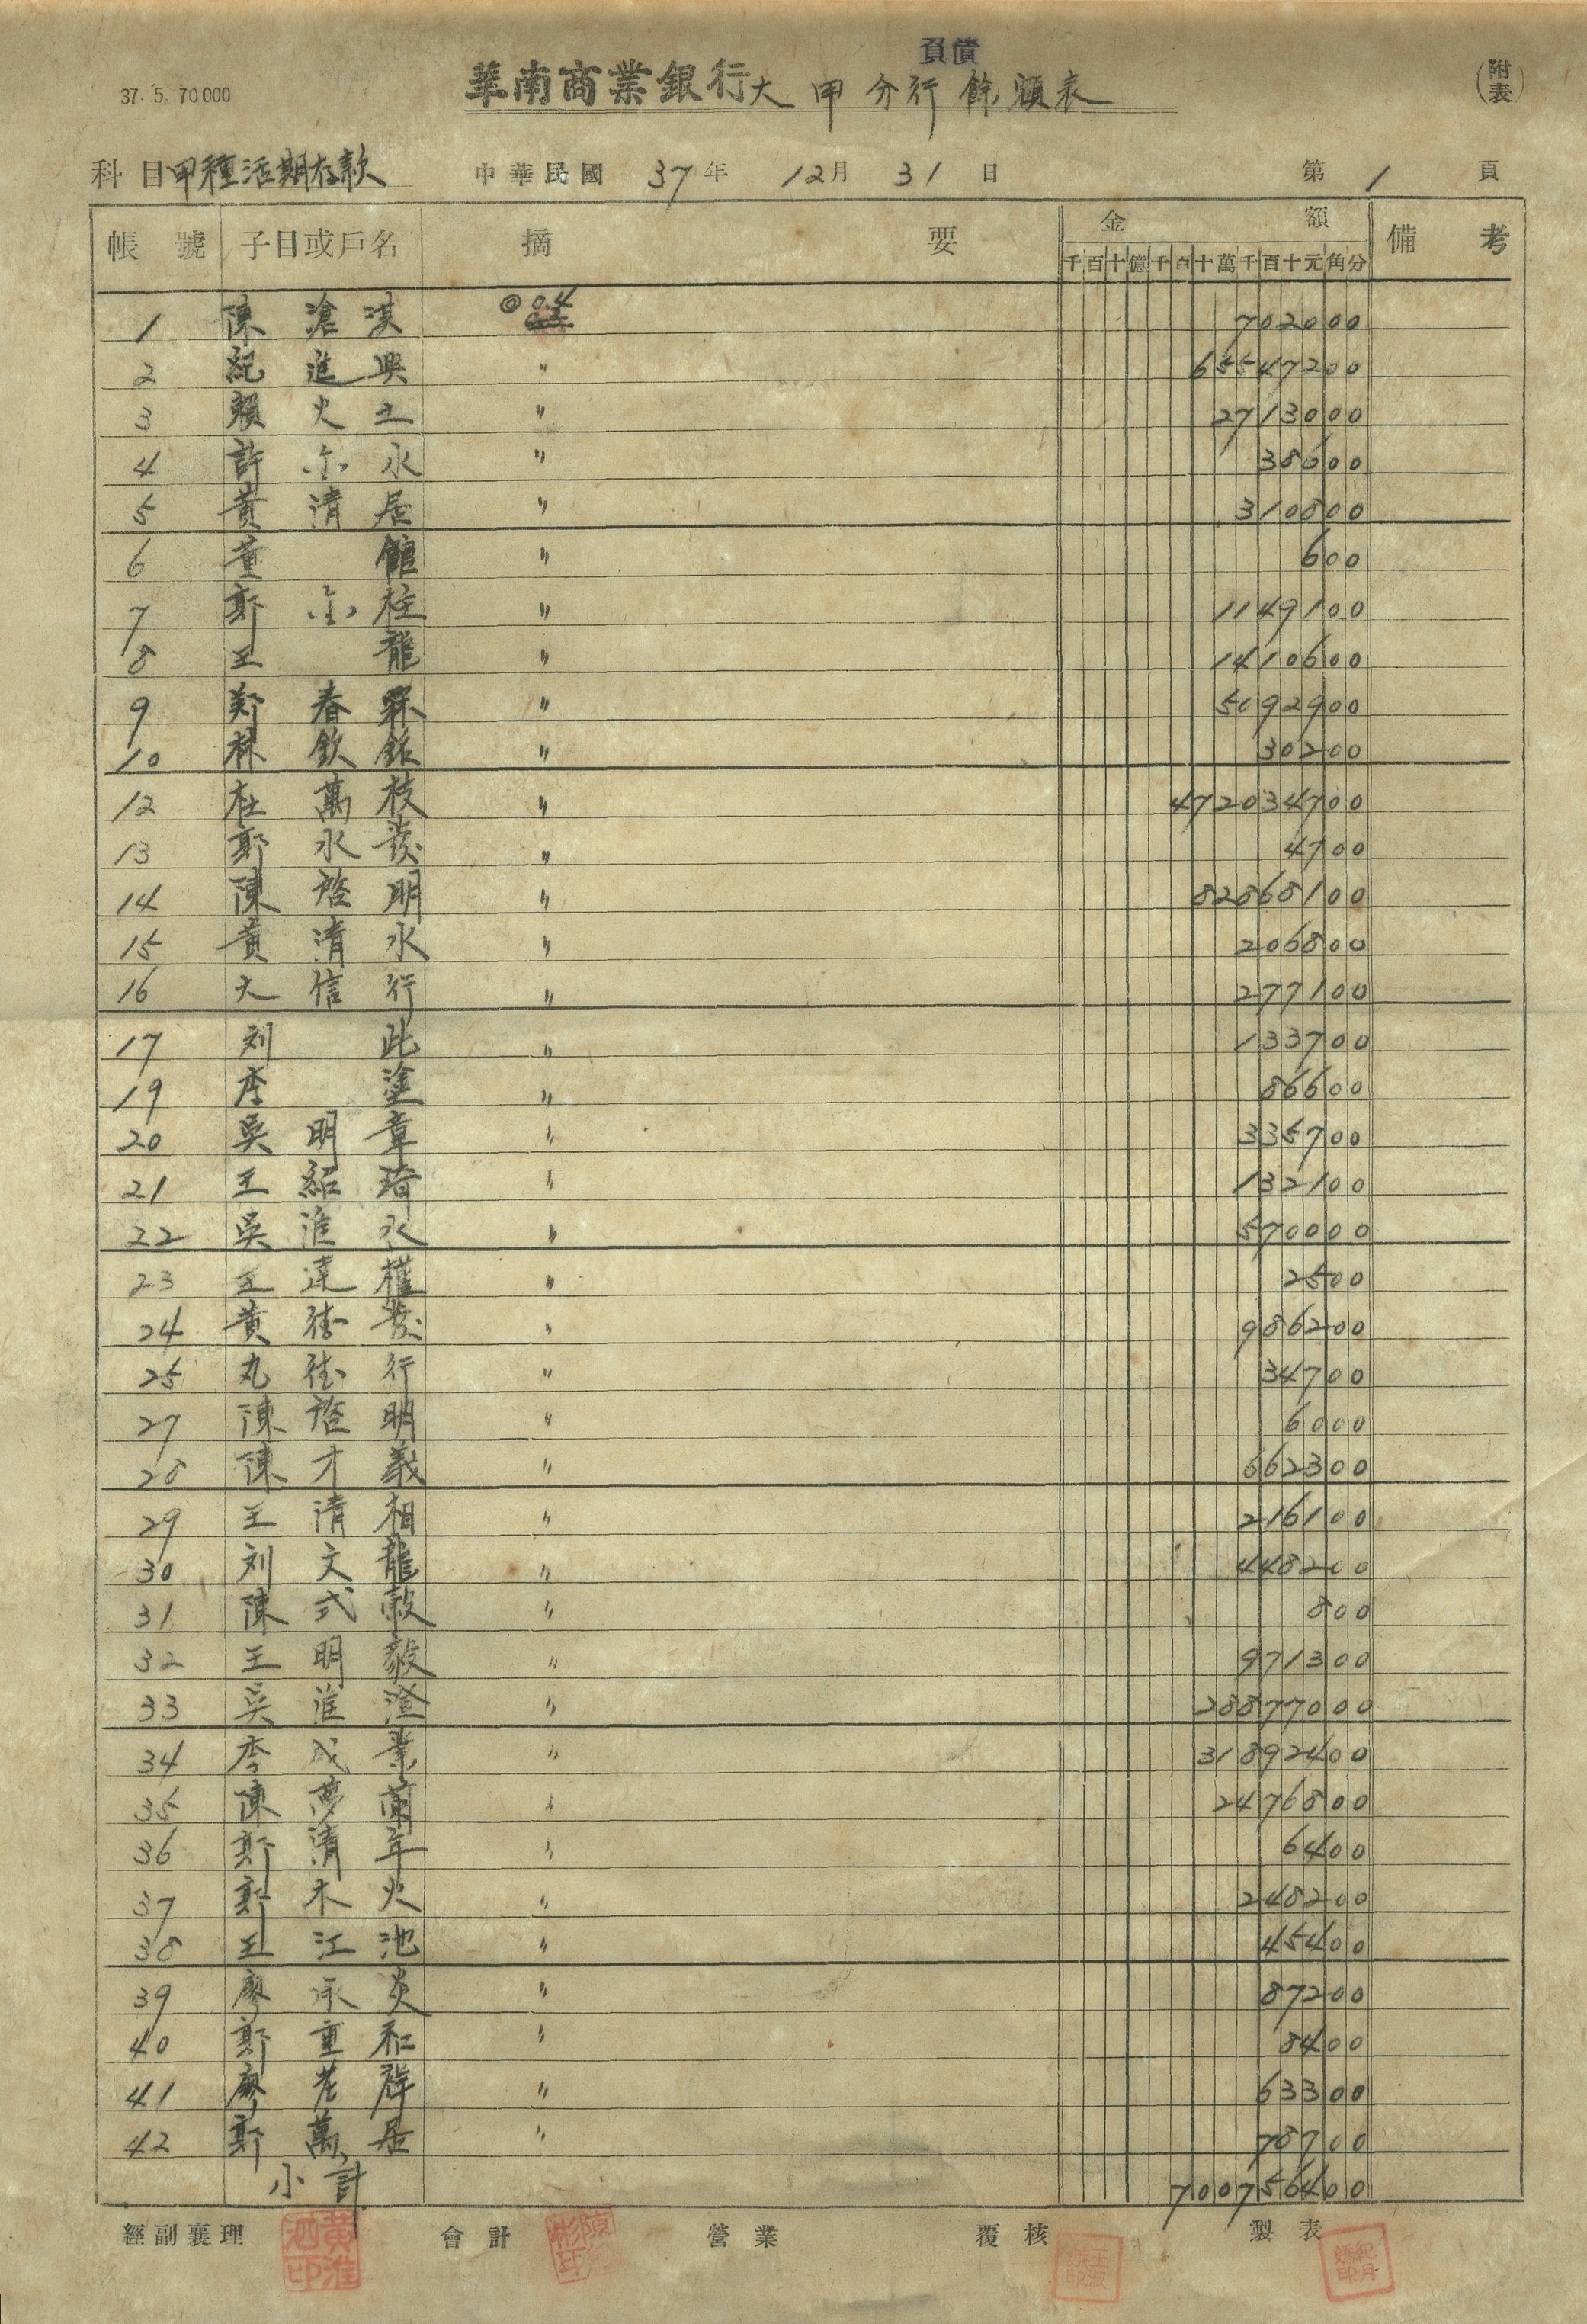 負債
37. 5. 70000
華南商業銀行大甲分行餘額表
(附表)
科目甲種活期存款 中華民國 37年 12月 31日 第 1 頁
帳號 子目或戶名 摘要 金額 備考
千百十億千百十萬千百十元角分
1 陳滄淇 @0.4 702000
2 紀進興 〃 65547200
3 賴火土 〃 2713000
4 許尓永 〃 38600
5 黃清居 〃 310800
6 董館 〃 600
7 郭尓柱 〃 1149100
8 王龍 〃 1410600
9 鄭春霖 〃 5092900
10 林欽銀 〃 30200
12 杜萬枝 〃 472034700
13 郭水發 〃 4700
14 陳啓明 〃 82868100
15 黃清水 〃 206800
16 大信行 〃 277100
17 刘此 〃 133700
19 李塗 〃 86600
20 吳明章 〃 335700
21 王紹琦 〃 132100
22 吳淮永 〃 570000
23 王達權 〃 2500
24 黃德發 〃 986200
25 丸德行 〃 34700
27 陳啓明 〃 6000
28 陳才義 〃 662300
29 王清相 〃 216100
30 刘文龍 〃 448200
31 陳式穀 〃 800
32 王明毅 〃 971300
33 吳淮澄 〃 28877000
34 李成業 〃 31892400
35 陳夢蘭 〃 2476800
36 郭清年 〃 6400
37 郭木火 〃 248200
38 王江池 〃 45400
39 廖承炎 〃 87200
40 郭重和 〃 8400
41 廖老群 〃 63300
42 郭萬居 〃 78700
小計 700756400
經副襄理 會計 營業 覆核 製表
黃淮泗印